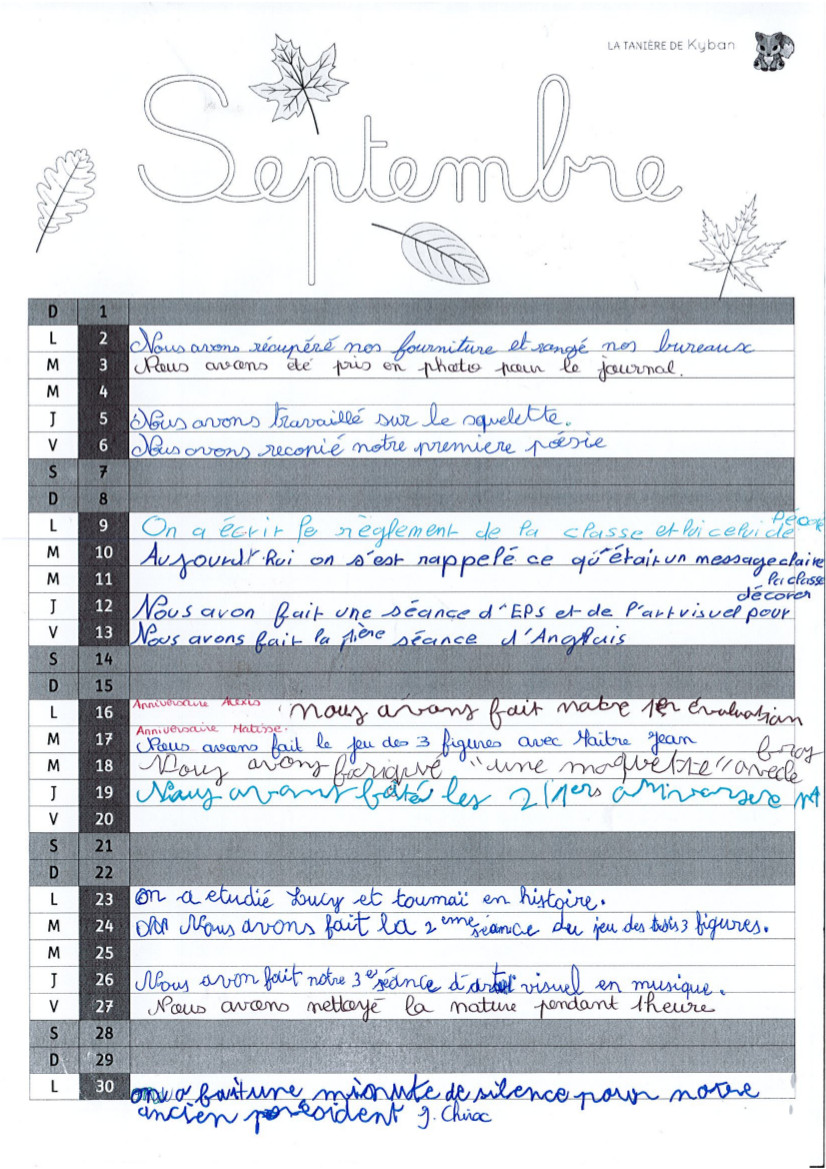 LA TANIÈRE DE Kyban
Septembre
D 1
L 2 Nous avons récupéré nos fourniture et rangé nos bureaux
M 3 Nous avons été pris en photo pour le journal.
M 4
J 5 Nous avons travaillé sur le squelette.
V 6 Nous avons recopié notre premiere poésie
S 7
D 8
L 9 On a écrit le règlement de la classe et lui celui de
M 10 Aujourd'hui on s'est rappelé ce qu'était un message claire
M 11 la classe
décorer
J 12 Nous avon fait une séance d'EPs et de l'art visuel pour
V 13 Nous avons fait la 1ière séance d'Anglais
S 14
D 15
Anniversaire Alexis
L 16 Nous avons fait notre 1er évaluation
Anniversaire Matisse.
M 17 Nous avons fait le jeu des 3 figures avec Maitre Jean
M 18 Nous avons fariqué "une maquette" avec le
J 19 Nous avons fêté les 2 1ers anniversere
V 20
S 21
D 22
L 23 on a etudié Lucy et toumaï en histoire.
M 24 Nous avons fait la 2eme séance du jeu des trois 3 figures.
M 25
J 26 Nous avon fait notre 3e séance d'art visuel en musique.
V 27 Nous avons nettoyé la nature pendant 1heure
S 28
D 29
L 30 on a fait une mionute de silence pour notre
ancien président J. Chirac